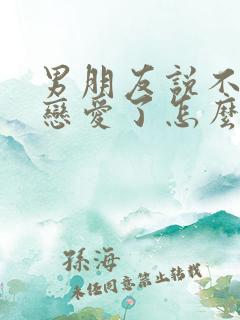 男朋友説不
戀愛了怎麼
孫海
未经同意禁止转载